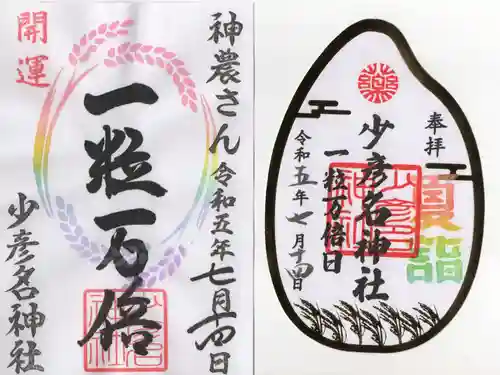 開運
神農さん 令和五年七月十四日
一粒一万倍
少彦名神社
奉拝
夏詣
少彦名神社
一粒万倍日
令和五年七月十四日